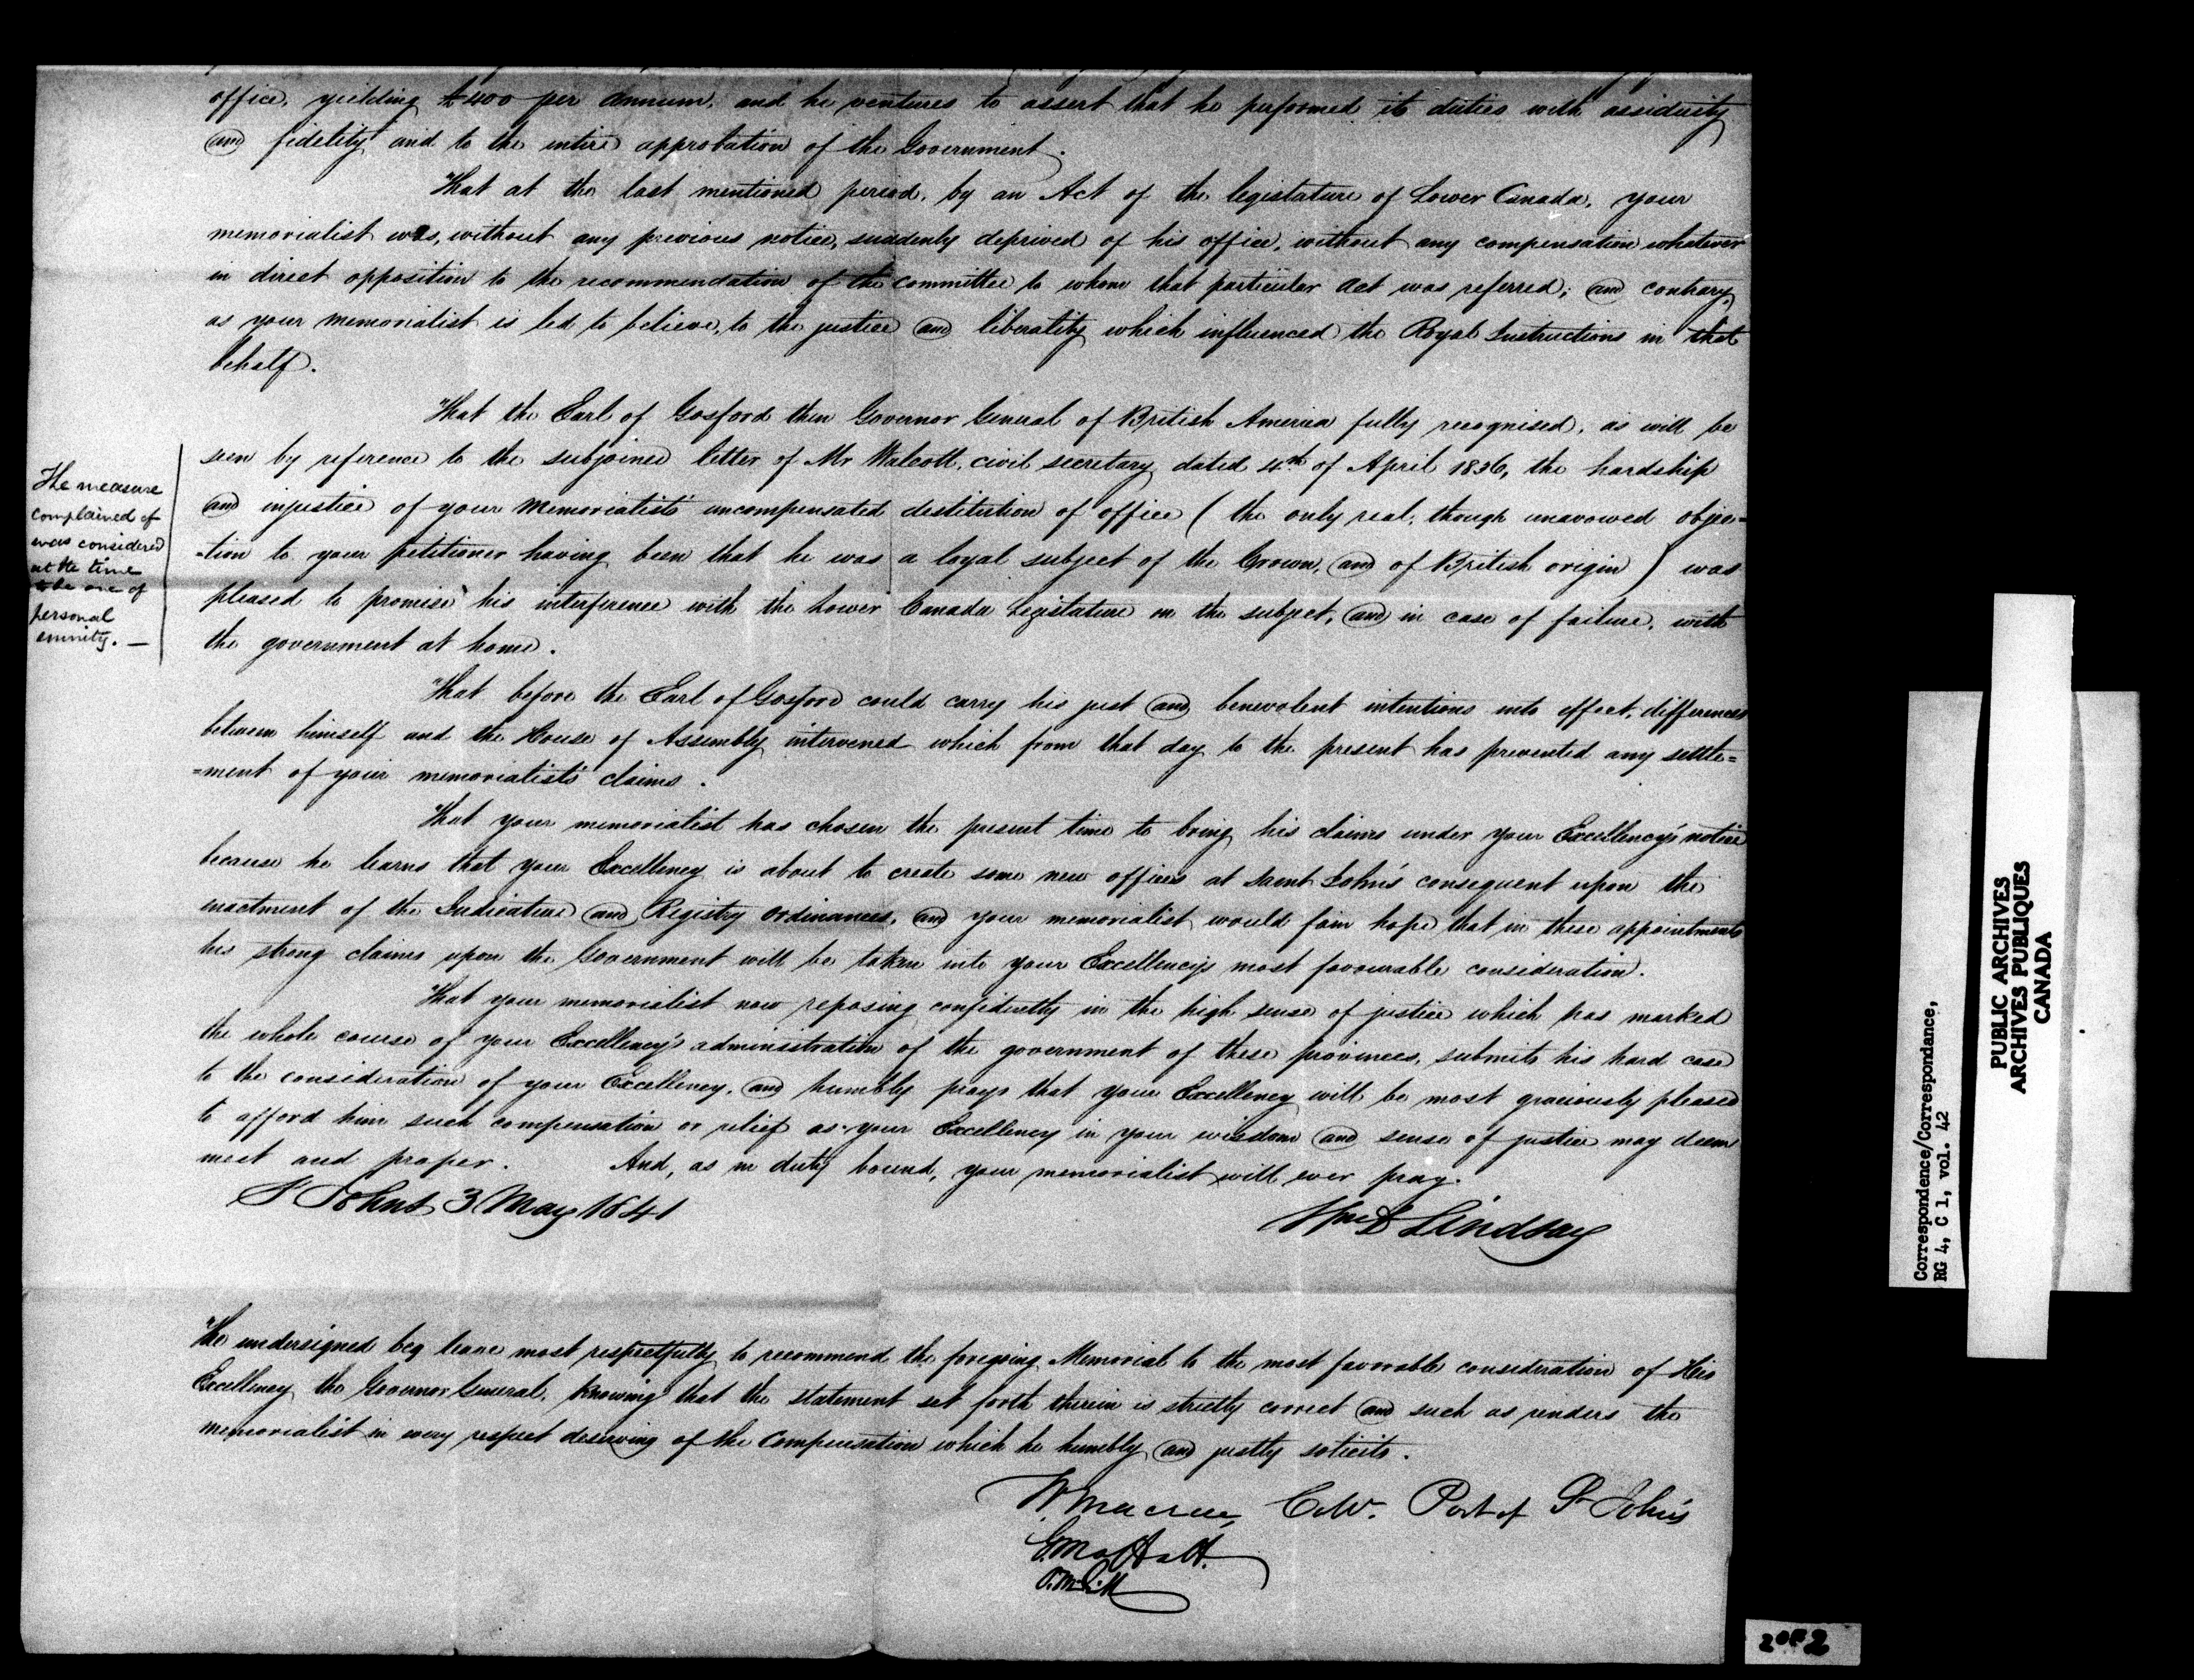 office, yielding £400 per annum, and he ventures to assert that he performed its duties with assiduity
and fidelity and to the entire approbation of the Government.
That at the last mentioned period, by an Act of the legislature of Lower Canada, your
memorialist was, without any previous notice, suddenly deprived of his office, without any compensation whatever
in direct opposition to the recommendation of the committee to whom that particular act was referred; and contrary,
as your memorialist is led to believe, to the justice and liberality which influenced the Royal Instructions in that
behalf.
That the Earl of Gosford then Governor General of British America fully recognised, as will be
seen by reference to the subjoined letter of Mr Walcott, civil secretary dated 4th of April 1836, the hardship
and injustice of your Memorialist's uncompensated destitution of office (the only real, though unavowed objec=
=tion to your petitioner having been that he was a loyal subject of the Crown, and of British origin) was
pleased to promise his interference with the Lower Canada Legislature on the subject, and in case of failure, with
the government at home.
The measure
complained of
was considered
at the time
to be one of
personal
enmity. —
That before the Earl of Gosford could carry his just and benevolent intentions into effect, differences
between himself and the House of Assembly intervened which from that day to the present has prevented any settle=
=ment of your memorialist's claims.
That your memorialist has chosen the present time to bring his claims under your Excellency's notice
because he learns that your Excellency is about to create some new offices at Saint John's consequent upon the
enactment of the Judicature and Registry Ordinances, and your memorialist would fain hope that in these appointments
his strong claims upon the Government will be taken into your Excellency's most favourable consideration.
That your memorialist now reposing confidently in the high sense of justice which has marked
the whole course of your Excellency's administration of the government of these provinces, submits his hard case
to the consideration of your Excellency, and humbly prays that your Excellency will be most graciously pleased
to afford him such compensation or relief as your Excellency in your wisdom and sense of justice may deem
meet and proper. And, as in duty bound, your memorialist will ever pray.
St Johns 3 May 1841
Wm B Lindsay
The undersigned beg leave most respectfully to recommend the foregoing Memorial to the most favorable consideration of His
Excellency the Governor General, knowing that the statement set forth therein is strictly correct and such as renders the
memorialist in every respect deserving of the Compensation which he humbly and justly solicits.
W. Macrae, Port of St John's
G. Moffatt.
P. McGill
Correspondence/Correspondance,
RG 4, C 1, vol. 42
PUBLIC ARCHIVES
ARCHIVES PUBLIQUES
CANADA
2 OF 2